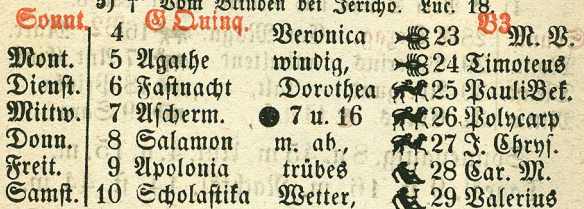 5) † Vom Blinden bei Jericho. Luc. 18.
Sonnt. 4 G Quinq. Veronica 23 M. V.
Mont. 5 Agathe windig, 24 Timoteus
Dienst. 6 Fastnacht Dorothea 25 Pauli Bek.
Mittw. 7 Ascherm. 7 u. 16 26 Polycarp
Donn. 8 Salamon m. ab., 27 J. Chrys.
Freit. 9 Apolonia trübes 28 Car. M.
Samst. 10 Scholastika Wetter, 29 Valerius